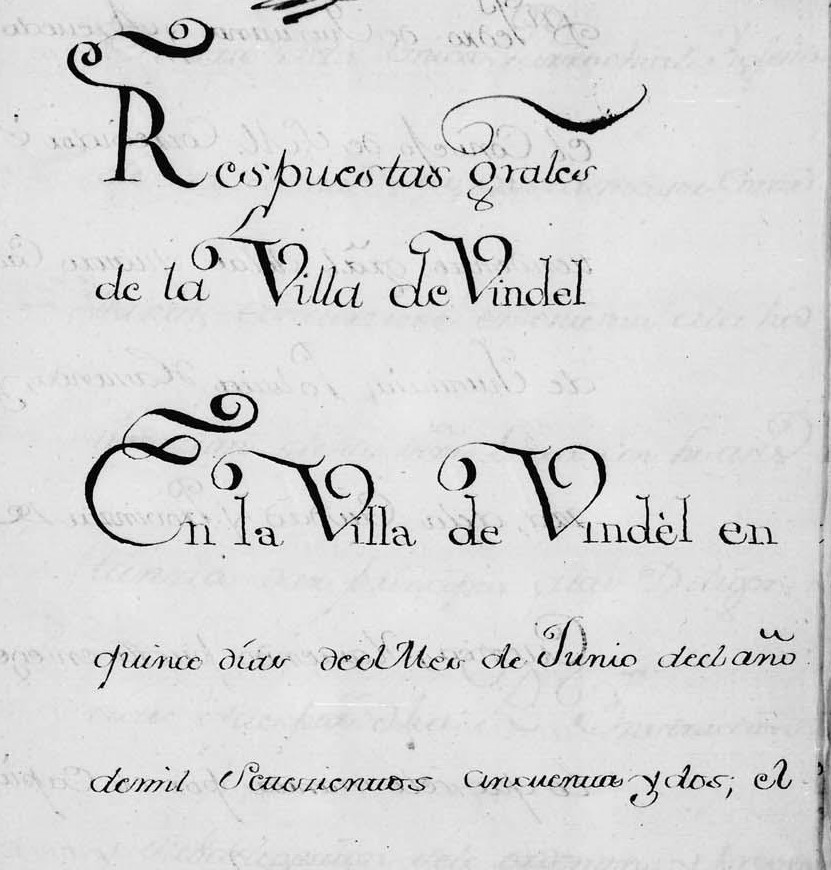 Respuestas grales
de la Villa de Vindel
En la Villa de Vindèl en
quince días deel Mes de Junio deel año
demil Setezientos cincuenta y dos; el